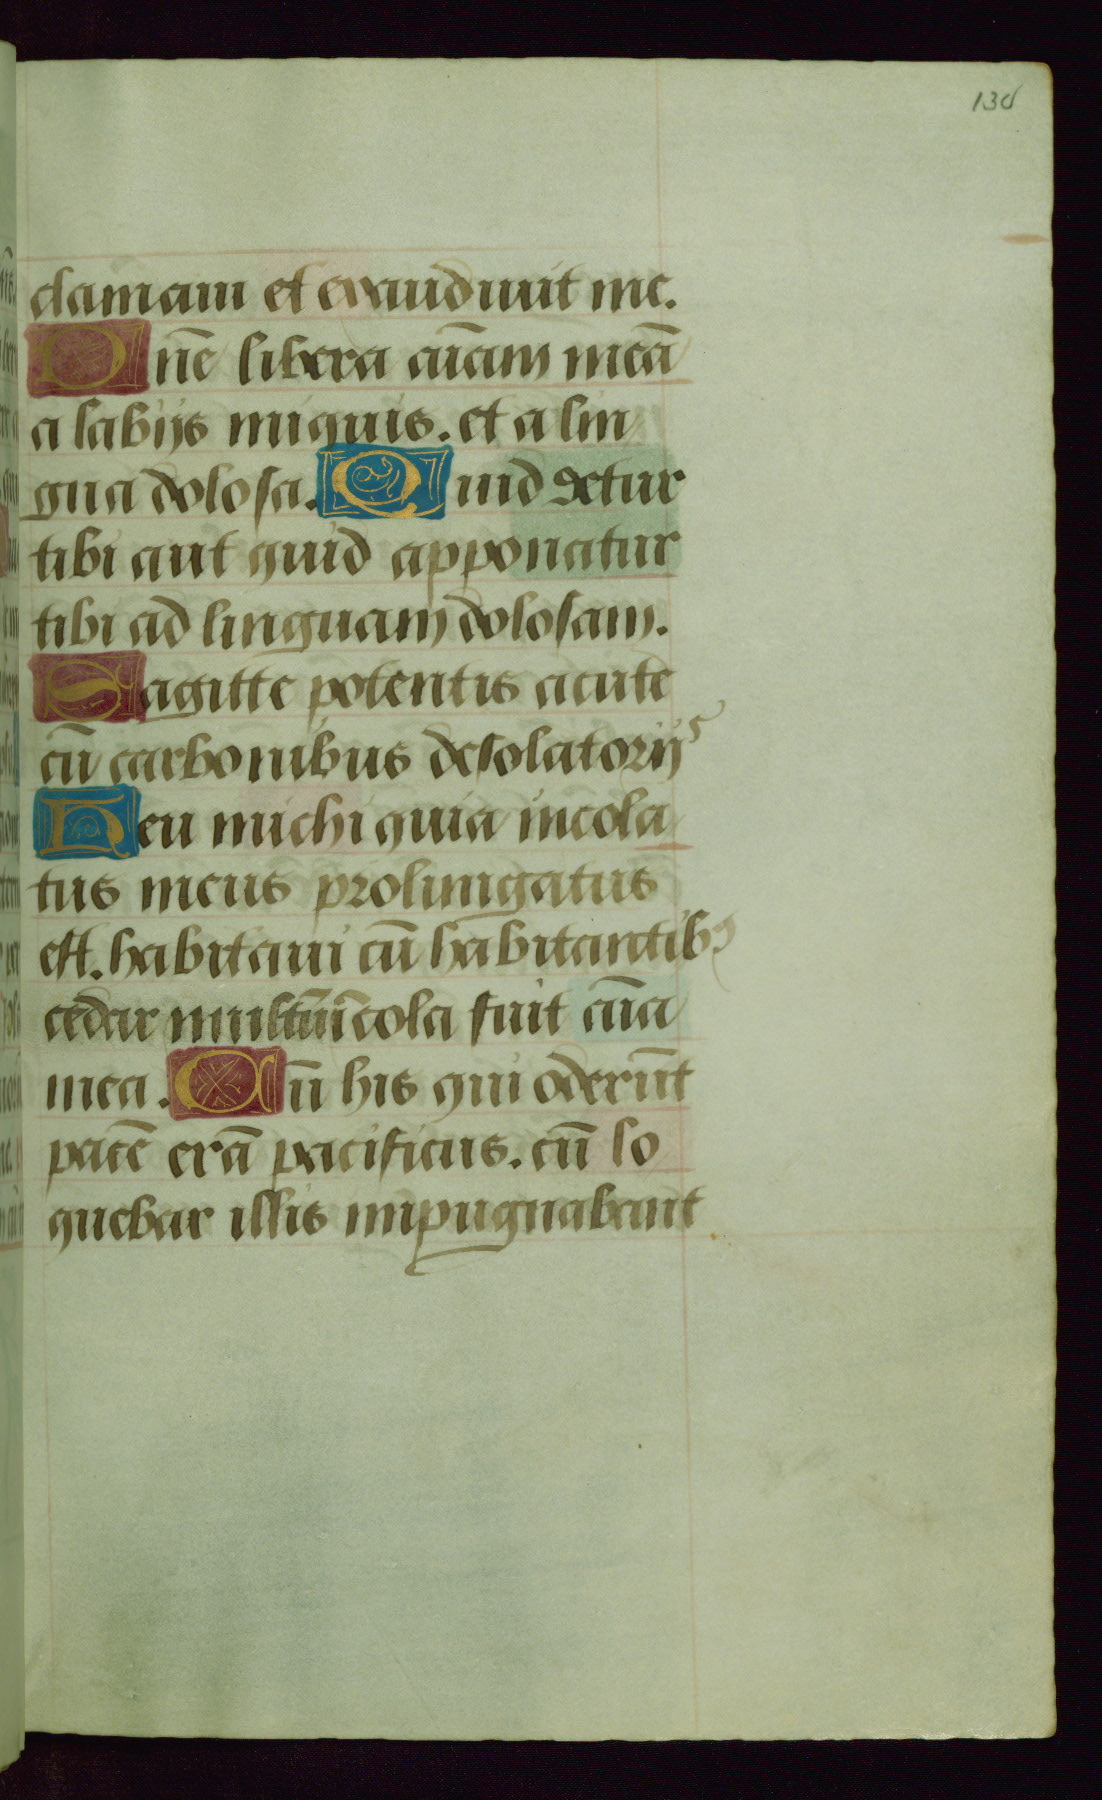 130
clamam et exaudiuit me.
Dñe libera aīam meā
a labijs iniquis. et a lin
gua dolosa. Quid detur
tibi aut quid apponatur
tibi ad linguam dolosam.
Sagitte potentis acute
cū carbonibus desolatorijs
Heu michi quia incola
tus meus prolungatus
est. habitaui cū habitantibꝰ
cedar multū īcola fuit aīa
mea. Cū his qui oderūt
pacē erā pacificus. cū lo
quebar illis impugnabant